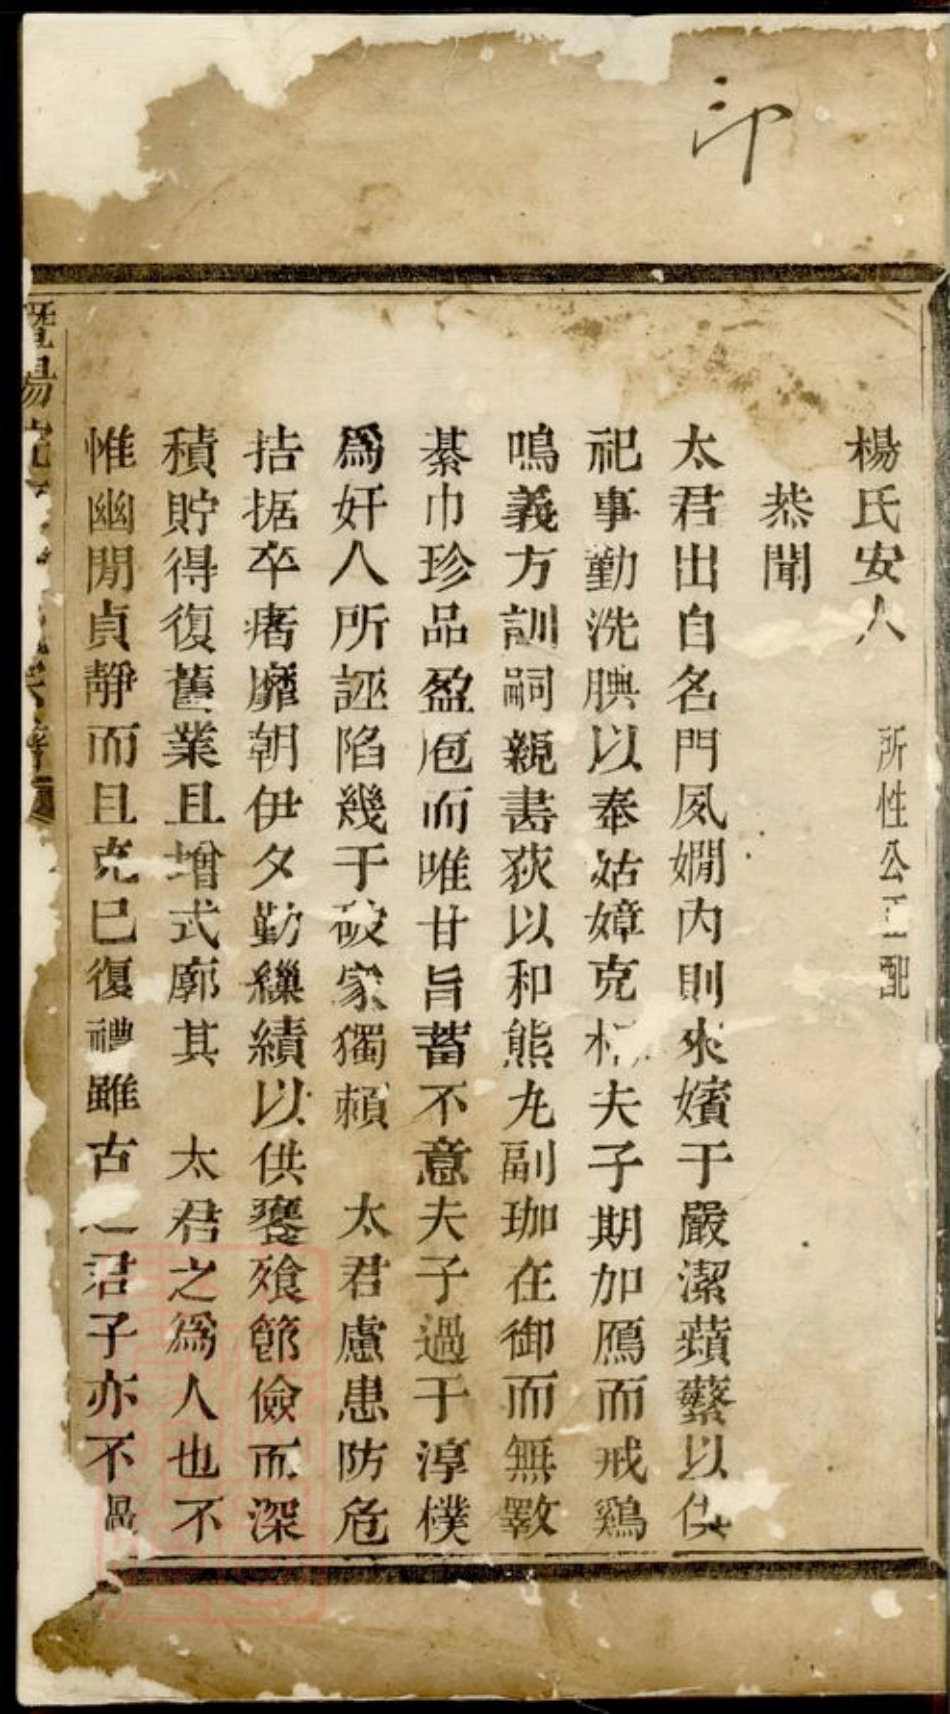 印
楊氏安人 所性公正配
恭聞
太君出自名門夙嫺内則來嬪于嚴潔蘋蘩以供
祀事勤洗腆以奉姑嫜克相夫子期加鴈而戒鷄
鳴義方訓嗣親書荻以和熊九副珈在御而無斁
綦巾珍品盈庖而唯甘旨蓄不意夫子過于淳樸
爲奸人所誣陷幾于破家獨賴 太君慮患防危
拮据卒瘏靡朝伊夕勤繅績以供饔飱節儉而深
積貯得復舊業且增式廓其 太君之爲人也不
惟幽閒貞靜而且克已復禮雖古 君子亦不
暨陽